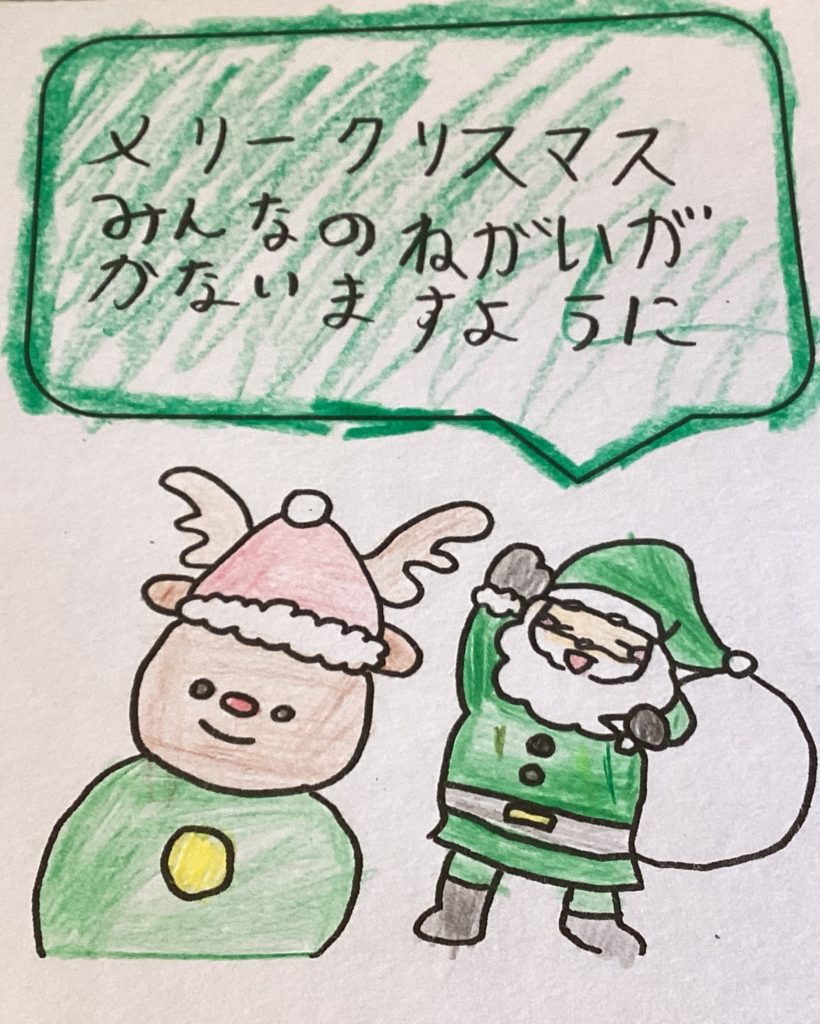 メリークリスマス
みんなのねがいが
かないますように